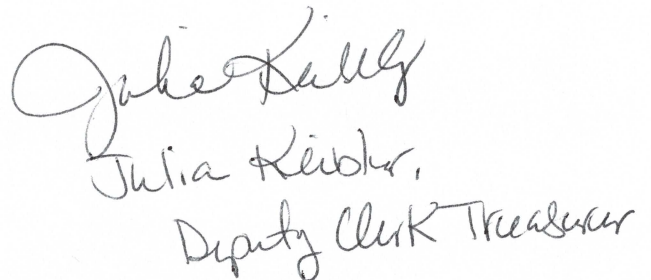 Julia
Julia Keibler,
Deputy Clerk Treasurer